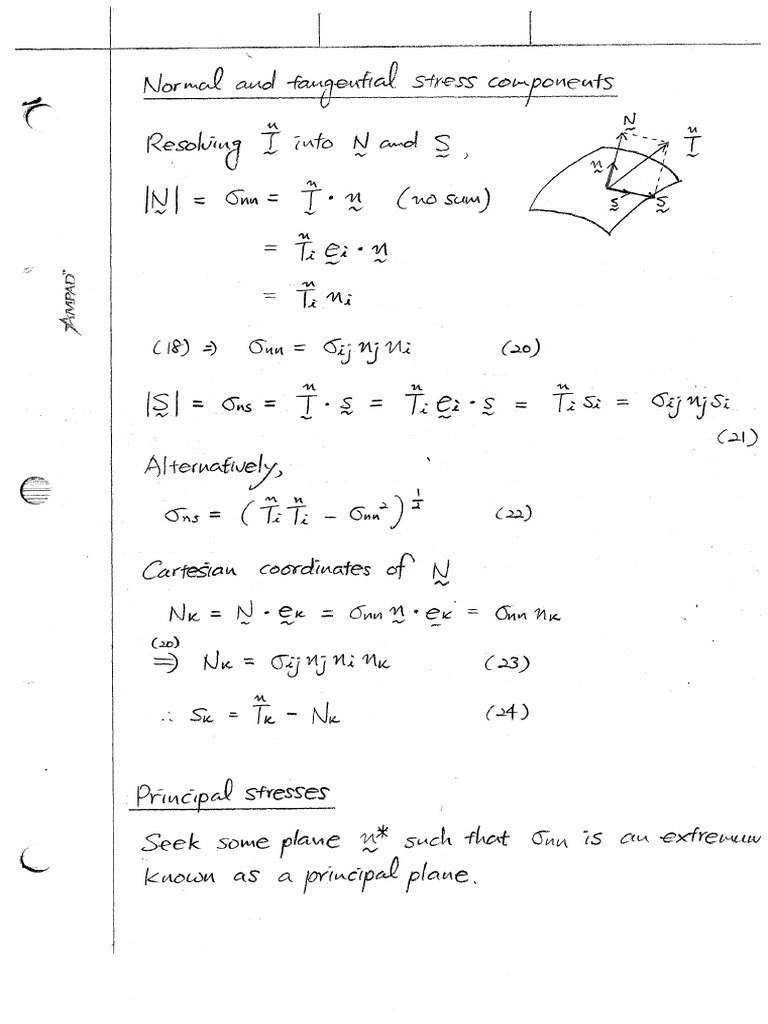 Normal and tangential stress components
Resolving T̰ⁿ into N̰ and S̰,
|N̰| = σnn = T̰ⁿ · n̰ (no sum)
= Tiⁿ ḛi · n̰
= Tiⁿ ni
(18) ⇒ σnn = σij nj ni (20)
|S̰| = σns = T̰ⁿ · s̰ = Tiⁿ ḛi · s̰ = Tiⁿ si = σij nj si
(21)
Alternatively,
σns = (Tiⁿ Tiⁿ - σnn²)^½ (22)
Cartesian coordinates of N̰
Nk = N̰ · ḛk = σnn n̰ · ḛk = σnn nk
(20)
⇒ Nk = σij nj ni nk (23)
∴ Sk = Tkⁿ - Nk (24)
Principal stresses
Seek some plane n̰* such that σnn is an extremum
known as a principal plane.
N̰
T̰ⁿ
n̰
s̰
S̰
AMPAD™